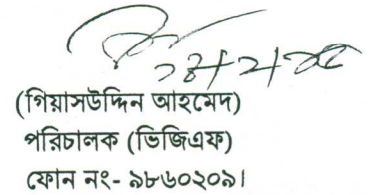 (গিয়াসউদ্দিন আহমেদ)
পরিচালক (ভিজিএফ)
ফোন নং- ৯৮৬০২০৯।